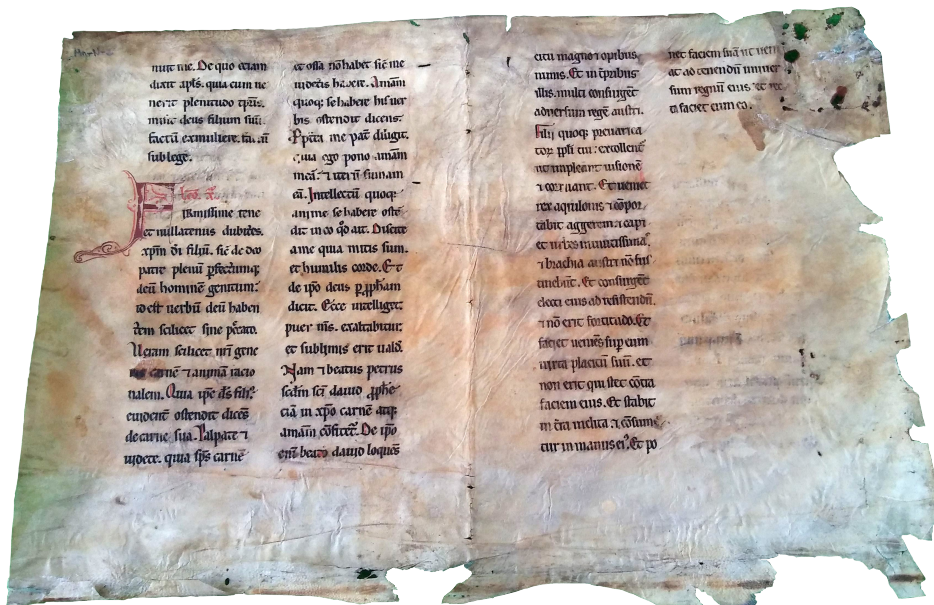 nuit me. De quo etiam
dixit apls. quia cum ue
nerit plenitudo tpris.
misit deus filium suū.
factū ex muliere. fa. sū
sub lege.
Firmissime tene
et nullatenus dubites.
xpm di filiū. sic de deo
patre plenū pfectumq;
deū hominē genitum.
id est uerbū deū haben
tem scilicet sine pctato.
Ueram scilicet nri gene
ris carnē ⁊ animā racio
nalem. Quia ipe ds fili'
euident ostendit dicēs
de carne sua. Palpate ⁊
uidete. quia sps carnē
et ossa nō habet sic me
uidetis habere. Animam
quoq; se habere his uer
bis ostendit dicens.
Pptea me pat diligit.
quia ego pono animam
meā. ⁊ iterū sumam
eā. Intellectū quoq;
anime se habere ostē
dit in eo qd ait. Discite
a me quia mitis sum.
et humilis corde. Et
de ipo deus p pphetam
dicit. Ecce intelliget
puer ms. exaltabitur.
et sublimis erit ualde.
Nam ⁊ beatus petrus
sedm sci dauid pphe
ciā in xpo carnē atq;
animam cōfitet. De ipo
eni beato dauid loquēs
citu magno ⁊ opibus
nimis. Et in tpribus
illis. multi consurgēt
aduersum regē austri.
Filii quoq; preuarica
tor ppli tui. extollent
ut impleant uisionē
⁊ corruant. Et ueniet
rex aqulonis ⁊ cōpor
tabit aggerem. ⁊ capi
et urbes munitissimas.
⁊ brachia austri nō sus
tinebūt. Et consurgēt
electi eius ad resistendū.
⁊ nō erit fortitudo. Et
faciet ueniēs sup eum
iuxta placitū suū. et
non erit qui stet cōtra
faciem eius. Et stabit
in tra inclita. ⁊ cōsume
tur in manu ei'. Et po
net faciem suā ut ueni
at ad tenendū uniuer
sum regnū eius. et rec
ta faciet cum eo.